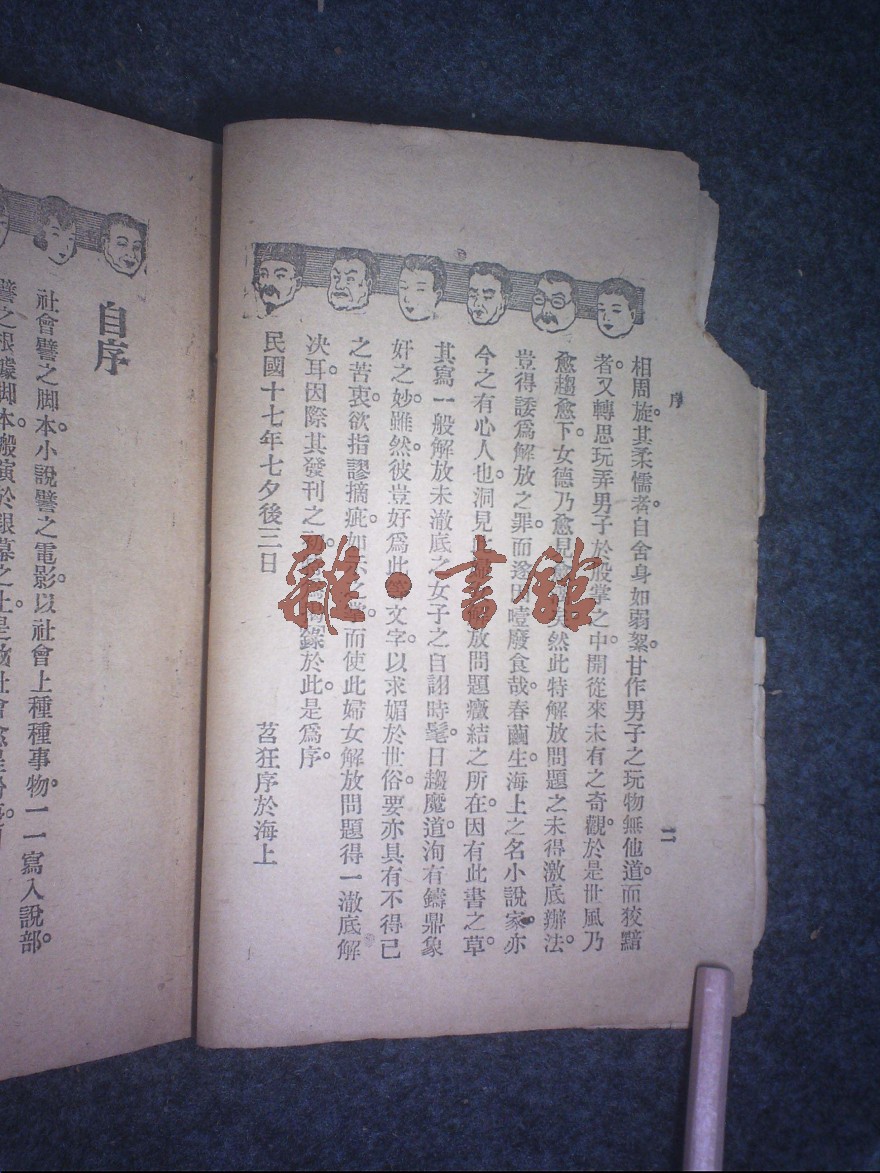 序
二
相周旋。其柔懦者自舍身如弱絮。甘作男子之玩物無他道。而狡黠
者。又轉思玩弄男子於股掌之中。開從來未有之奇觀。於是世風乃
愈趨愈下。女德乃愈見然此特解放問題之未得澈底辦法。
豈得諉爲解放之罪。而遂因噎廢食哉。春繭生。海上之名小說家。亦
今之有心人也。洞見放問題癥結之所在。因有此書之草。
其寫一般解放未澈底之女子之自詡時髦。日趨魔道。洵有鑄鼎象
奸之妙。雖然。彼豈好爲此等文字。以求媚於世俗。要亦具有不得已
之苦衷。欲指謬摘疵。如示之掌。而使此婦女解放問題得一澈底解
决耳。因際其發刊之錄於此。是爲序。
民國十七年七夕後三日 苕狂序於海上
自序
社會譬之脚本。小說譬之電影。以社會上種種事物。一一寫入說部。
譬之根據脚本。搬演於銀幕之上。是故社會愈
雜·書館